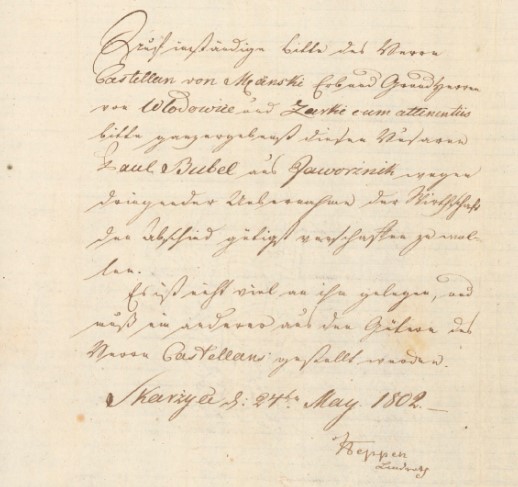 Auf inständige bitte des Herrn
Castellan von Męnski Erb und Grundherrn
von Wlodowice und Zarki cum attinentiis
bitte ganz ergebenst diesen Husaren
Paul Bubel aus Jaworznik wegen
dringender Uebernahme der Wirthschaft
den Abschied gütigst verschaffen zu wol-
len.
Es ist nicht viel an ihn gelegen, und
muß ein anderer aus den Gütern des
Herrn Castellans gestellt werden.
d: 24ten May. 1802.
Landrath